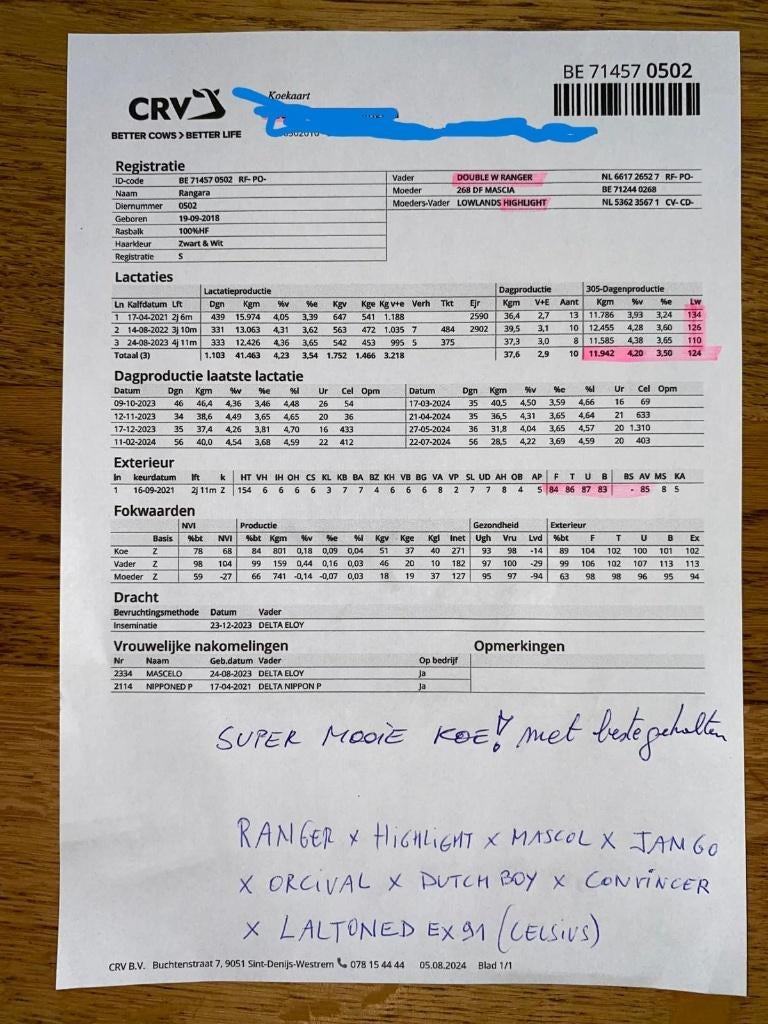 BE 71457 0502
CRV
Koekaart
BETTER COWS > BETTER LIFE
Registratie
ID-code BE 71457 0502 RF- PO-
Naam Rangara
Diernummer 0502
Geboren 19-09-2018
Rasbalk 100%HF
Haarkleur Zwart & Wit
Registratie S
Vader DOUBLE W RANGER NL 6617 2652 7 RF- PO-
Moeder 268 DF MASCIA BE 71244 0268
Moeders-Vader LOWLANDS HIGHLIGHT NL 5362 3567 1 CV- CD-
Lactaties
Lactatieproductie Dagproductie 305-Dagenproductie
Ln Kalfdatum Lft Dgn Kgm %v %e Kgv Kge Kg v+e Verh Tkt Ejr Kgm V+E Aant Kgm %v %e Lw
1 17-04-2021 2j 6m 439 15.974 4,05 3,39 647 541 1.188 2590 36,4 2,7 13 11.786 3,93 3,24 134
2 14-08-2022 3j 10m 331 13.063 4,31 3,62 563 472 1.035 7 484 2902 39,5 3,1 10 12.455 4,28 3,60 126
3 24-08-2023 4j 11m 333 12.426 4,36 3,65 542 453 995 5 375 37,3 3,0 8 11.585 4,38 3,65 110
Totaal (3) 1.103 41.463 4,23 3,54 1.752 1.466 3.218 37,6 2,9 10 11.942 4,20 3,50 124
Dagproductie laatste lactatie
Datum Dgn Kgm %v %e %l Ur Cel Opm Datum Dgn Kgm %v %e %l Ur Cel Opm
09-10-2023 46 46,4 4,36 3,46 4,48 26 54 17-03-2024 35 40,5 4,50 3,59 4,66 16 69
12-11-2023 34 38,6 4,49 3,65 4,65 20 36 21-04-2024 35 36,5 4,31 3,65 4,64 21 633
17-12-2023 35 37,4 4,26 3,81 4,70 16 433 27-05-2024 36 31,8 4,04 3,65 4,57 20 1.310
11-02-2024 56 40,0 4,54 3,68 4,59 22 412 22-07-2024 56 28,5 4,22 3,69 4,59 20 403
Exterieur
ln keurdatum lft k HT VH IH OH CS KL KB BA BZ KH VB BG VA VP SL UD AH OB AP F T U B BS AV MS KA
1 16-09-2021 2j 11m Z 154 6 6 6 6 3 7 7 4 6 6 6 8 2 7 7 8 4 5 84 86 87 83 - 85 8 5
Fokwaarden
NVI Productie Gezondheid Exterieur
Basis %bt NVI %bt Kgm %v %e %l Kgv Kge Kgl Inet Ugh Vru Lvd %bt F T U B Ex
Koe Z 78 68 84 801 0,18 0,09 0,04 51 37 40 271 93 98 -14 89 104 102 100 101 102
Vader Z 98 104 99 159 0,44 0,16 0,03 46 20 10 182 97 100 -29 99 106 102 107 113 113
Moeder Z 59 -27 66 741 -0,14 -0,07 0,03 18 19 37 127 95 97 -94 63 98 98 96 95 94
Dracht
Bevruchtingsmethode Datum Vader
Inseminatie 23-12-2023 DELTA ELOY
Vrouwelijke nakomelingen
Nr Naam Geb.datum Vader Op bedrijf
2334 MASCELO 24-08-2023 DELTA ELOY Ja
2114 NIPPONED P 17-04-2021 DELTA NIPPON P Ja
Opmerkingen
SUPER MOOIE KOE! met beste gehalten
RANGER x HIGHLIGHT x MASCOL x JANGO
x ORCIVAL x DUTCH BOY x CONVINCER
x LALTONED EX 91 (CELSIUS)
CRV B.V. Buchtenstraat 7, 9051 Sint-Denijs-Westrem 078 15 44 44 05.08.2024 Blad 1/1